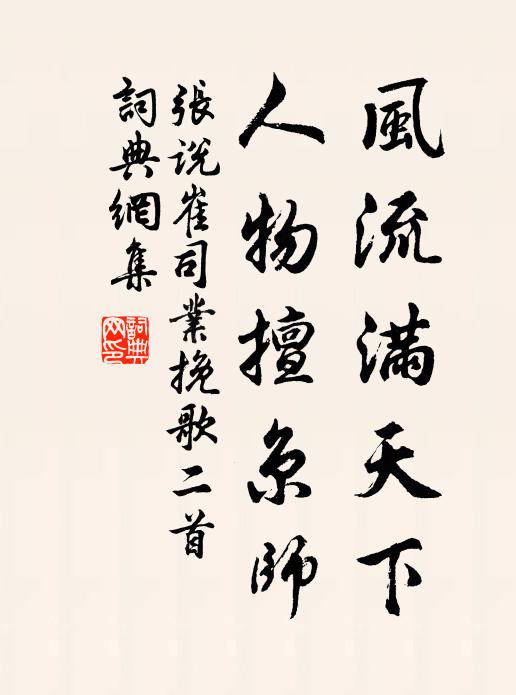 風流滿天下
人物擅京師
張說崔司業挽歌二首
詞典網集
詞典網印